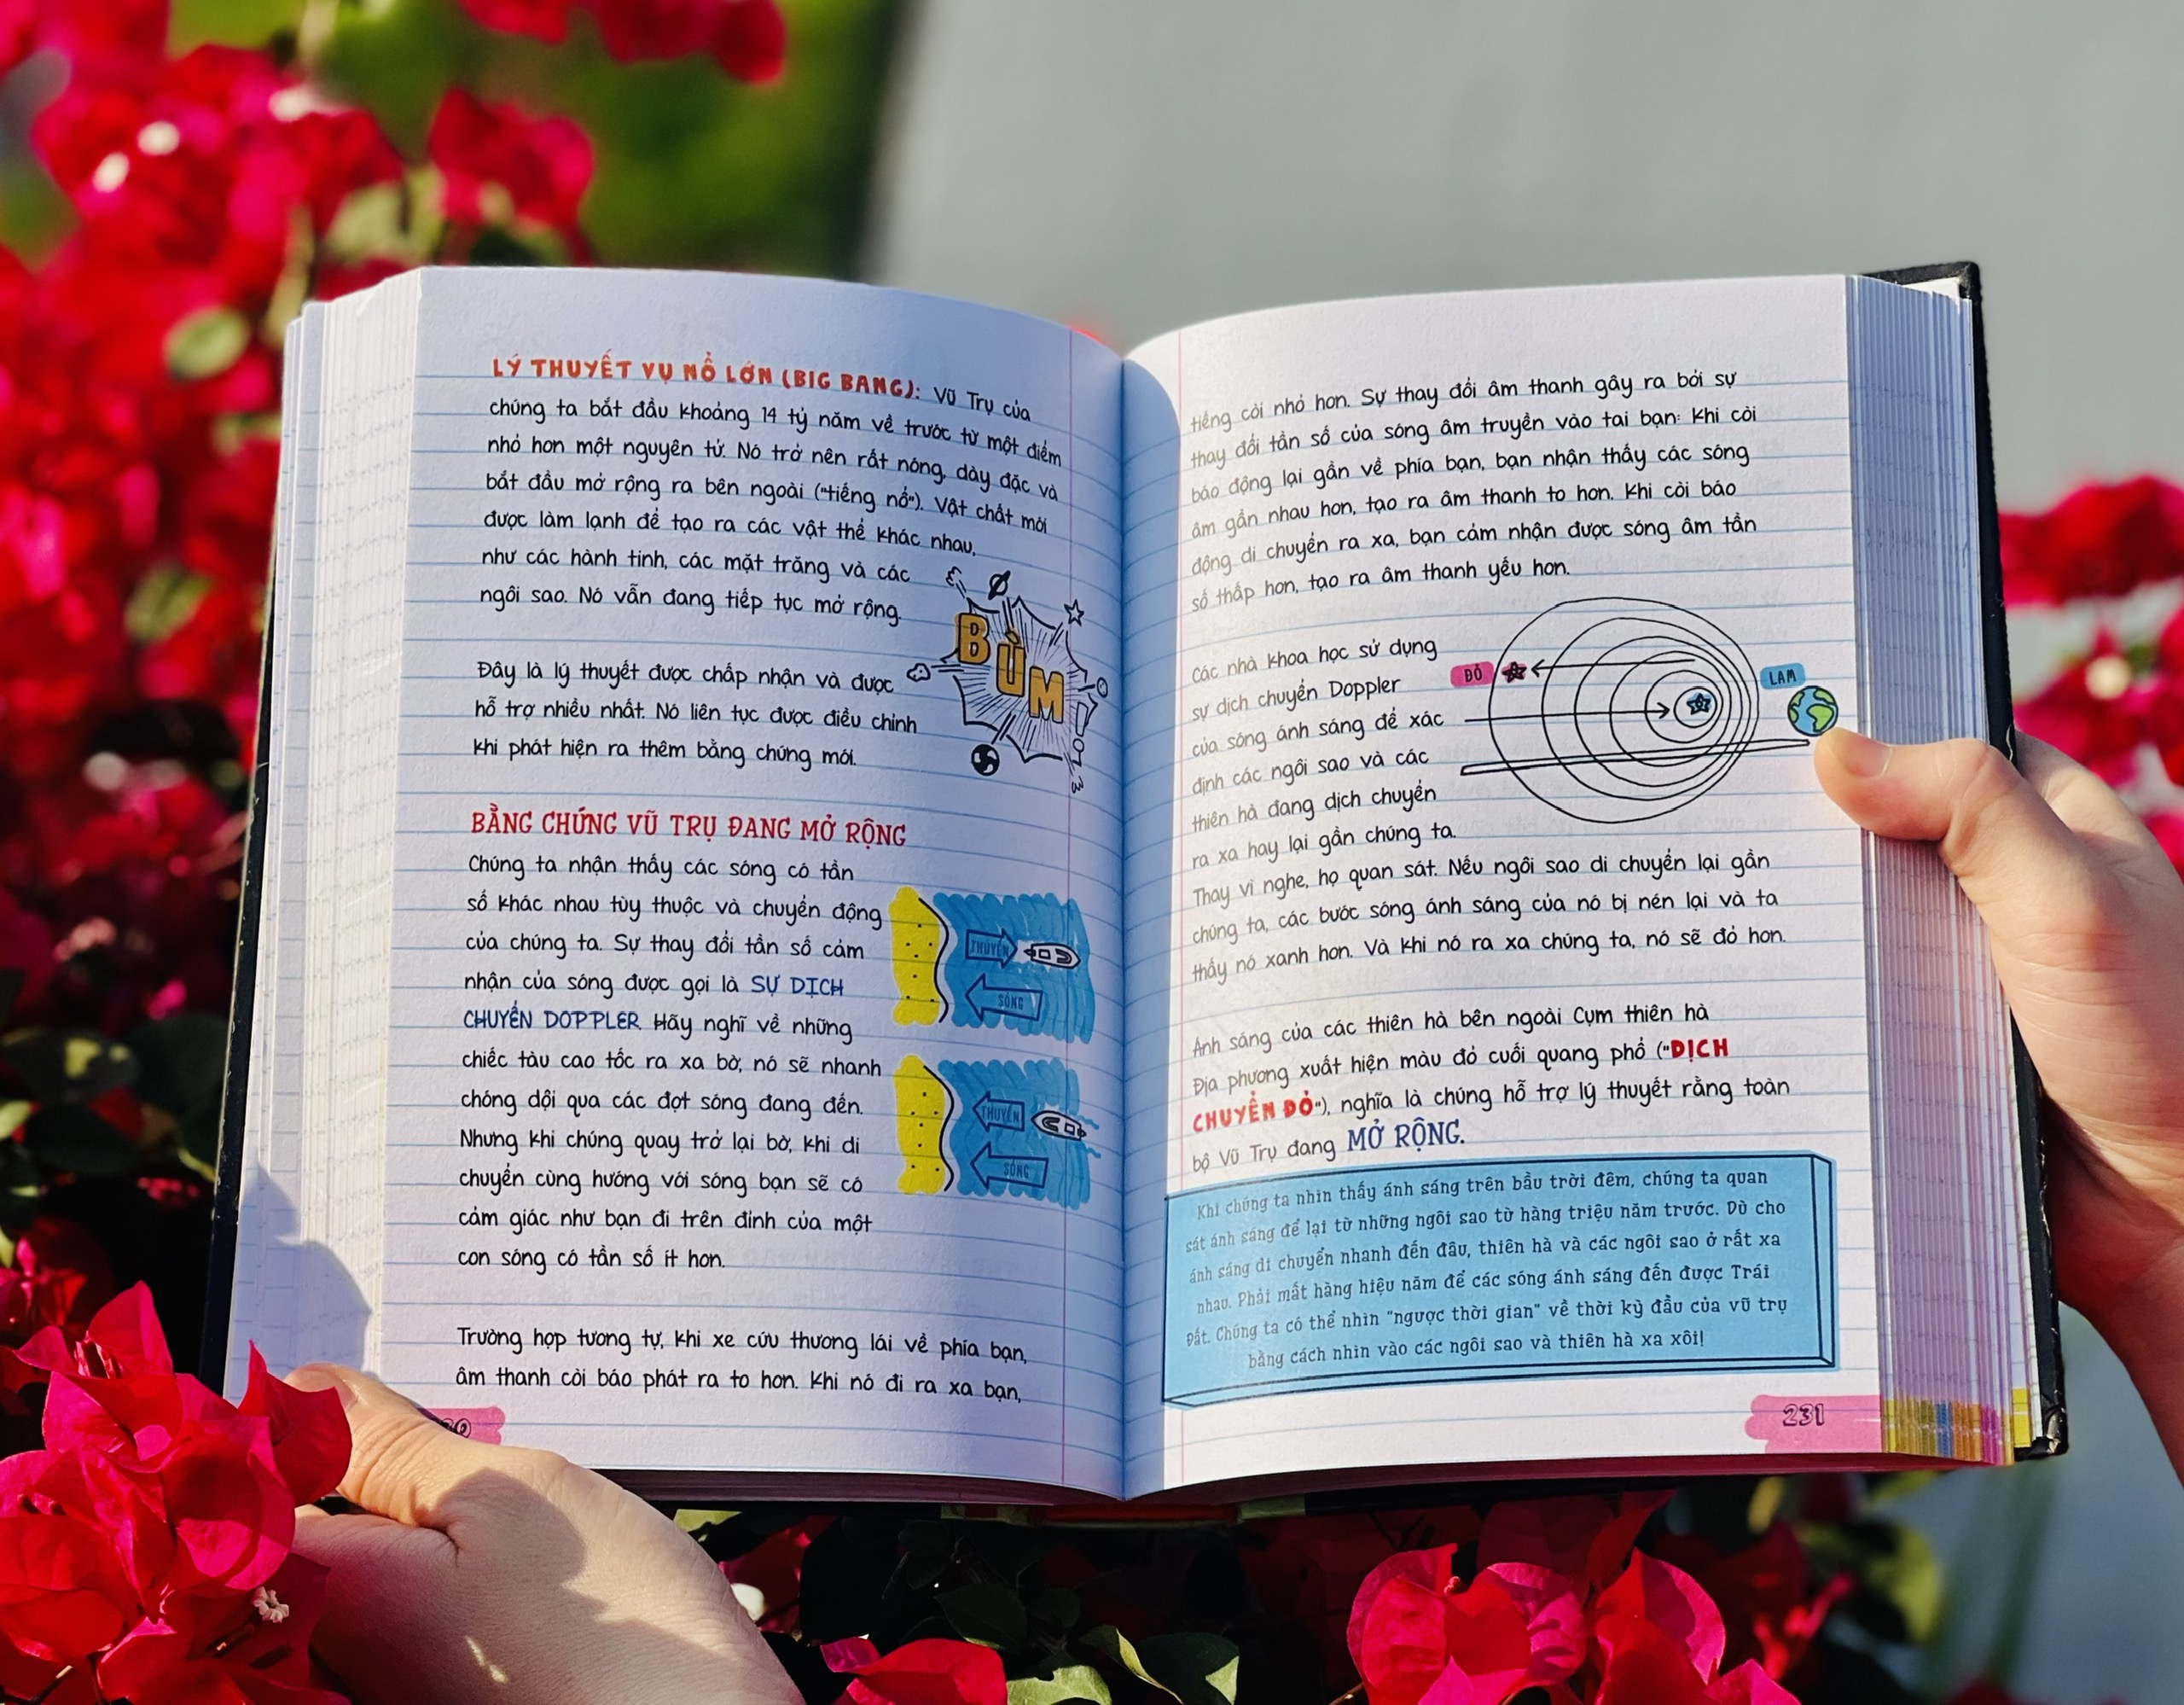 LÝ THUYẾT VỤ NỔ LỚN (BIG BANG): Vũ Trụ của
chúng ta bắt đầu khoảng 14 tỷ năm về trước từ một điểm
nhỏ hơn một nguyên tử. Nó trở nên rất nóng, dày đặc và
bắt đầu mở rộng ra bên ngoài ("tiếng nổ"). Vật chất mới
được làm lạnh để tạo ra các vật thể khác nhau,
như các hành tinh, các mặt trăng và các
ngôi sao. Nó vẫn đang tiếp tục mở rộng.
BÙM
Đây là lý thuyết được chấp nhận và được
hỗ trợ nhiều nhất. Nó liên tục được điều chỉnh
khi phát hiện ra thêm bằng chứng mới.
BẰNG CHỨNG VŨ TRỤ ĐANG MỞ RỘNG
Chúng ta nhận thấy các sóng có tần
số khác nhau tùy thuộc và chuyển động
của chúng ta. Sự thay đổi tần số cảm
nhận của sóng được gọi là SỰ DỊCH
CHUYỂN DOPPLER. Hãy nghĩ về những
chiếc tàu cao tốc ra xa bờ, nó sẽ nhanh
chóng dội qua các đợt sóng đang đến.
Nhưng khi chúng quay trở lại bờ, khi di
chuyển cùng hướng với sóng bạn sẽ có
cảm giác như bạn đi trên đỉnh của một
con sóng có tần số ít hơn.
THUYỀN
SÓNG
THUYỀN
SÓNG
Trường hợp tương tự, khi xe cứu thương lái về phía bạn,
âm thanh còi báo phát ra to hơn. Khi nó đi ra xa bạn,
tiếng còi nhỏ hơn. Sự thay đổi âm thanh gây ra bởi sự
thay đổi tần số của sóng âm truyền vào tai bạn: Khi còi
báo động lại gần về phía bạn, bạn nhận thấy các sóng
âm gần nhau hơn, tạo ra âm thanh to hơn. Khi còi báo
động di chuyển ra xa, bạn cảm nhận được sóng âm tần
số thấp hơn, tạo ra âm thanh yếu hơn.
Các nhà khoa học sử dụng
sự dịch chuyển Doppler
của sóng ánh sáng để xác
định các ngôi sao và các
thiên hà đang dịch chuyển
ra xa hay lại gần chúng ta.
ĐỎ
LAM
Thay vì nghe, họ quan sát. Nếu ngôi sao di chuyển lại gần
chúng ta, các bước sóng ánh sáng của nó bị nén lại và ta
thấy nó xanh hơn. Và khi nó ra xa chúng ta, nó sẽ đỏ hơn.
Ánh sáng của các thiên hà bên ngoài Cụm thiên hà
Địa phương xuất hiện màu đỏ cuối quang phổ ("DỊCH
CHUYỂN ĐỎ"), nghĩa là chúng hỗ trợ lý thuyết rằng toàn
bộ Vũ Trụ đang MỞ RỘNG.
Khi chúng ta nhìn thấy ánh sáng trên bầu trời đêm, chúng ta quan
sát ánh sáng để lại từ những ngôi sao từ hàng triệu năm trước. Dù cho
ánh sáng di chuyển nhanh đến đâu, thiên hà và các ngôi sao ở rất xa
nhau. Phải mất hàng hiệu năm để các sóng ánh sáng đến được Trái
Đất. Chúng ta có thể nhìn "ngược thời gian" về thời kỳ đầu của vũ trụ
bằng cách nhìn vào các ngôi sao và thiên hà xa xôi!
231